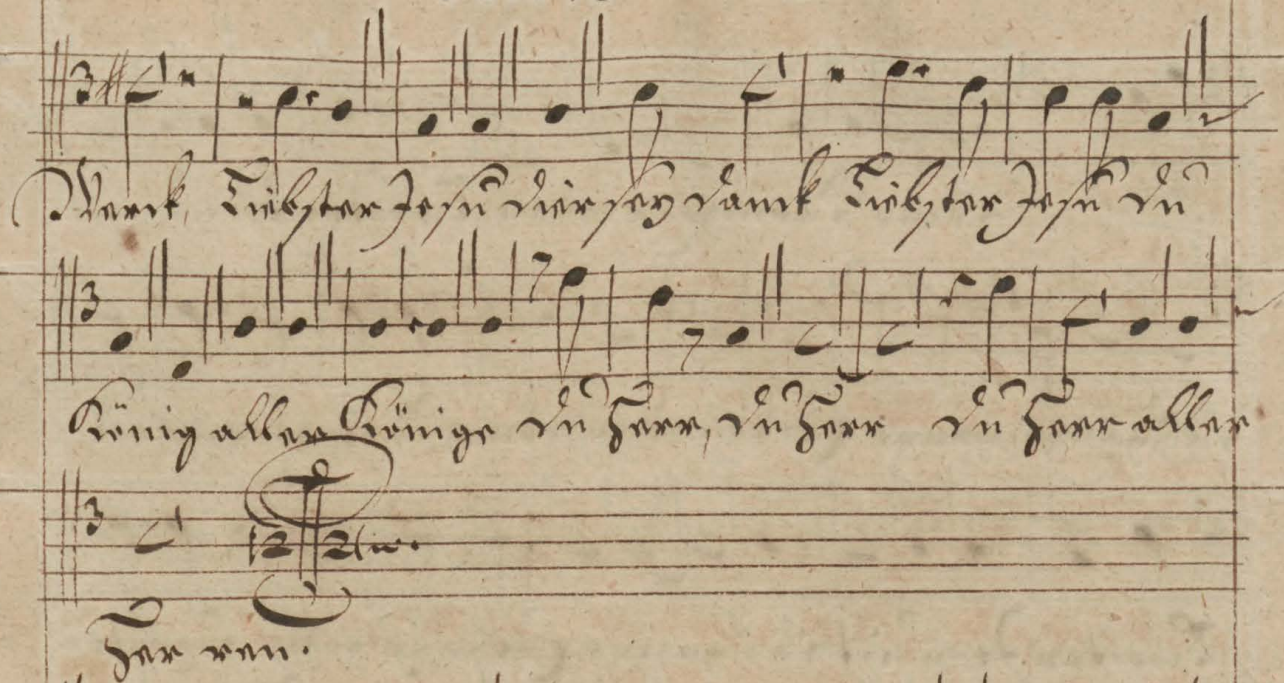 Werck, Liebster Jesu dier sey danck Liebster Jesu du
König aller Könige du Herr, du Herr du Herr aller
Her ren.